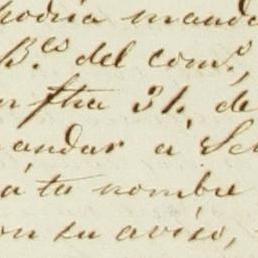 podria manda
B.es del com.o,
fha 31. de
mandar á Se
á tu nombre
on su aviso,